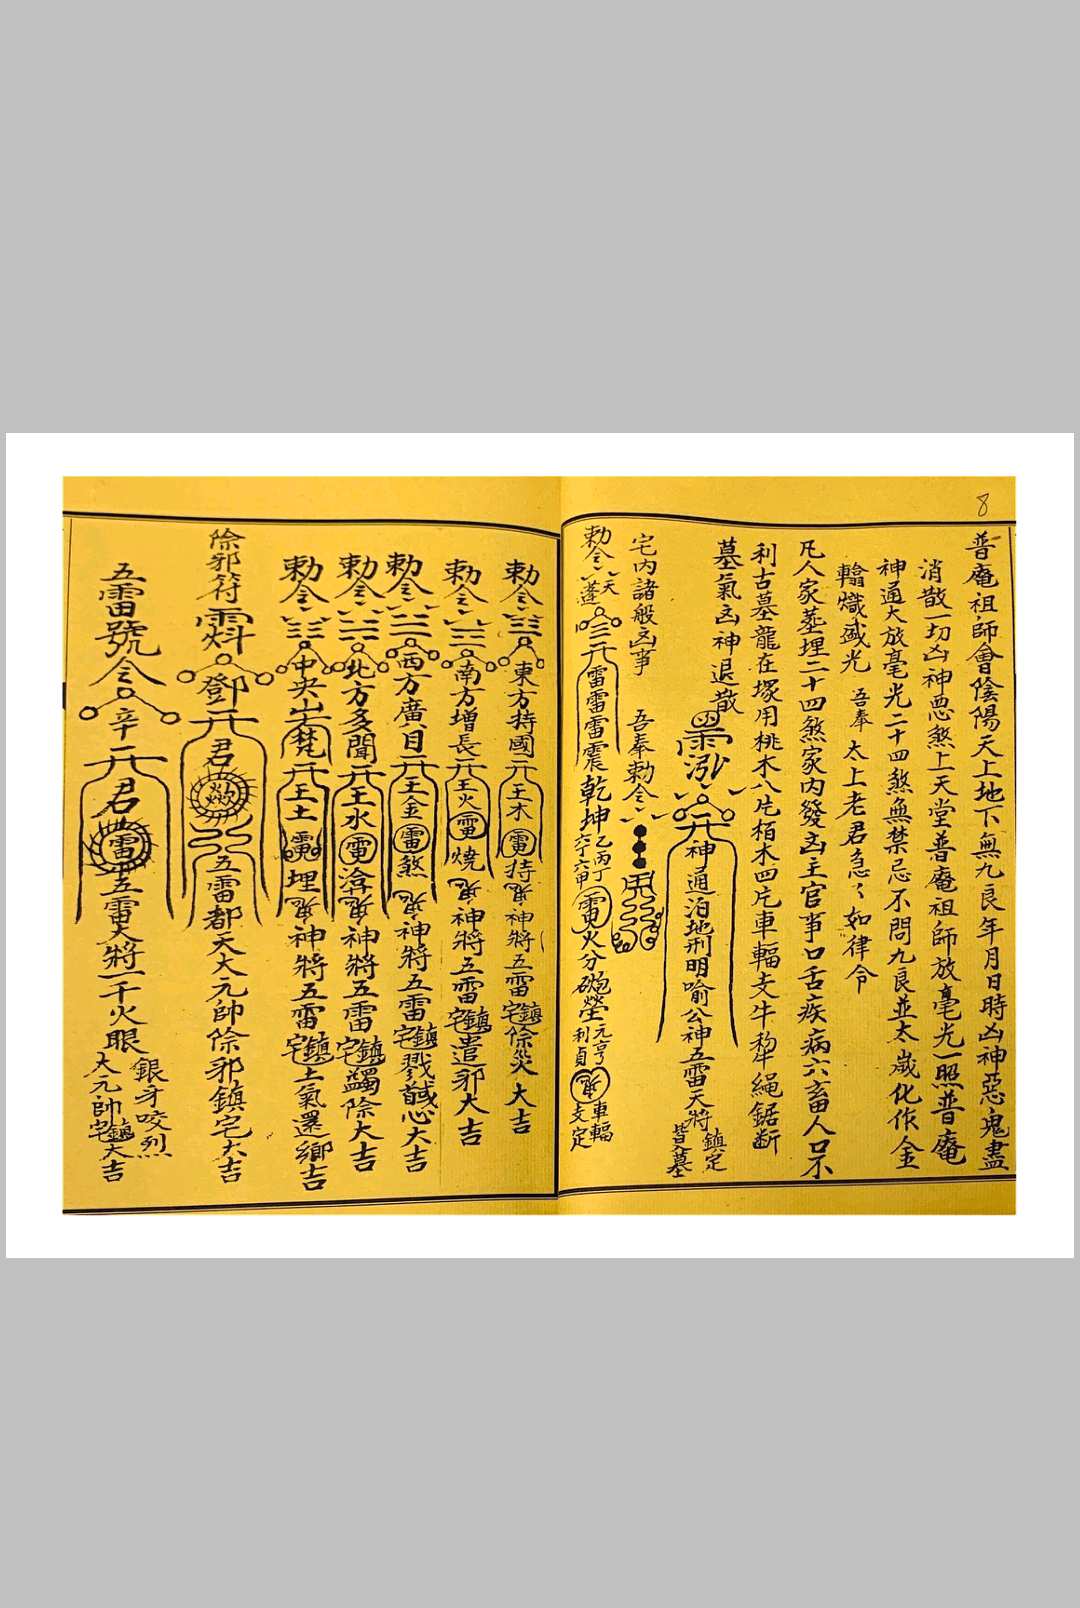 8
普庵祖師會陰陽天上地下無九良年月日時凶神惡鬼盡
消散一切凶神惡煞上天堂普庵祖師放毫光一照普庵
神通大放毫光二十四煞無禁忌不問九良並太歲化作金
輪熾盛光 吾奉 太上老君急〻如律令
凡人家墓埋二十四煞家内發凶主官事口舌疾病六畜人口不
利古墓龍在塚用桃木八片栢木四片車輻支牛犂繩鋸断
墓氣凶神退散
神通泊地刑明喻公神五雷天將
鎮定
皆墓
宅内諸般凶事 吾奉勅令
勅令
天
蓬
雷雷雷震乾坤
乙丙丁
六丁六甲
電火分
元亨
利貞
車輻
支定
勅令 東方持國 王木 電 持 神將五雷鎮宅除災大吉
勅令 南方增長 王火 電 燒 神將五雷鎮宅遣邪大吉
勅令 西方廣目 王金 雷 煞 神將五雷鎮宅戮 心大吉
勅令 北方多聞 王水 電 神將五雷鎮宅蠲除大吉
勅令 中央 梵 王土 埋 神將五雷鎮宅土氣還鄉吉
除邪符 鄧 君 五雷都天大元帥除邪鎮宅大吉
五雷號令 辛 君 雷 五雷大將一千火眼
銀牙咬烈
大元帥鎮宅大吉